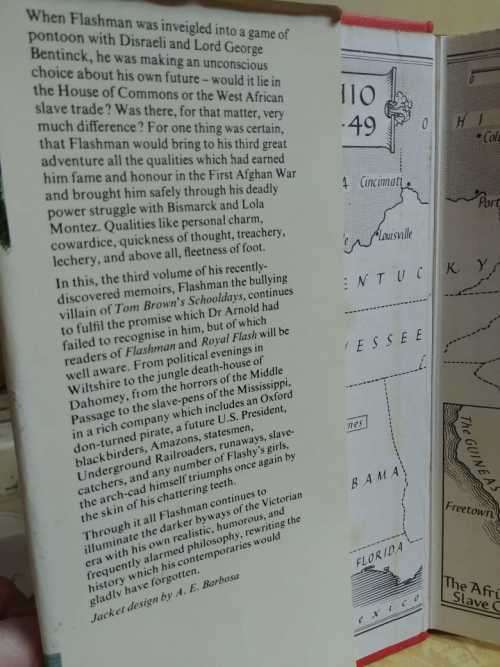 When Flashman was inveigled into a game of
pontoon with Disraeli and Lord George
Bentinck, he was making an unconscious
choice about his own future – would it lie in
the House of Commons or the West African
slave trade? Was there, for that matter, very
much difference? For one thing was certain,
that Flashman would bring to his third great
adventure all the qualities which had earned
him fame and honour in the First Afghan War
and brought him safely through his deadly
power struggle with Bismarck and Lola
Montez. Qualities like personal charm,
cowardice, quickness of thought, treachery,
lechery, and above all, fleetness of foot.
In this, the third volume of his recently-
discovered memoirs, Flashman the bullying
villain of Tom Brown's Schooldays, continues
to fulfil the promise which Dr Arnold had
failed to recognise in him, but of which
readers of Flashman and Royal Flash will be
well aware. From political evenings in
Wiltshire to the jungle death-house of
Dahomey, from the horrors of the Middle
Passage to the slave-pens of the Mississippi,
in a rich company which includes an Oxford
don-turned pirate, a future U.S. President,
blackbirders, Amazons, statesmen,
Underground Railroaders, runaways, slave-
catchers, and any number of Flashy's girls,
the arch-cad himself triumphs once again by
the skin of his chattering teeth.
Through it all Flashman continues to
illuminate the darker byways of the Victorian
era with his own realistic, humorous, and
frequently alarmed philosophy, rewriting the
history which his contemporaries would
gladly have forgotten.
Jacket design by A. E. Barbosa
HIO
-49
O
H I
Cincinnati
Louisville
E N T U C
K Y
E S S E E
B A M A
FLORIDA
e x i c o
Col
Port
The GUINEAS
Freetown
The Afri
Slave C